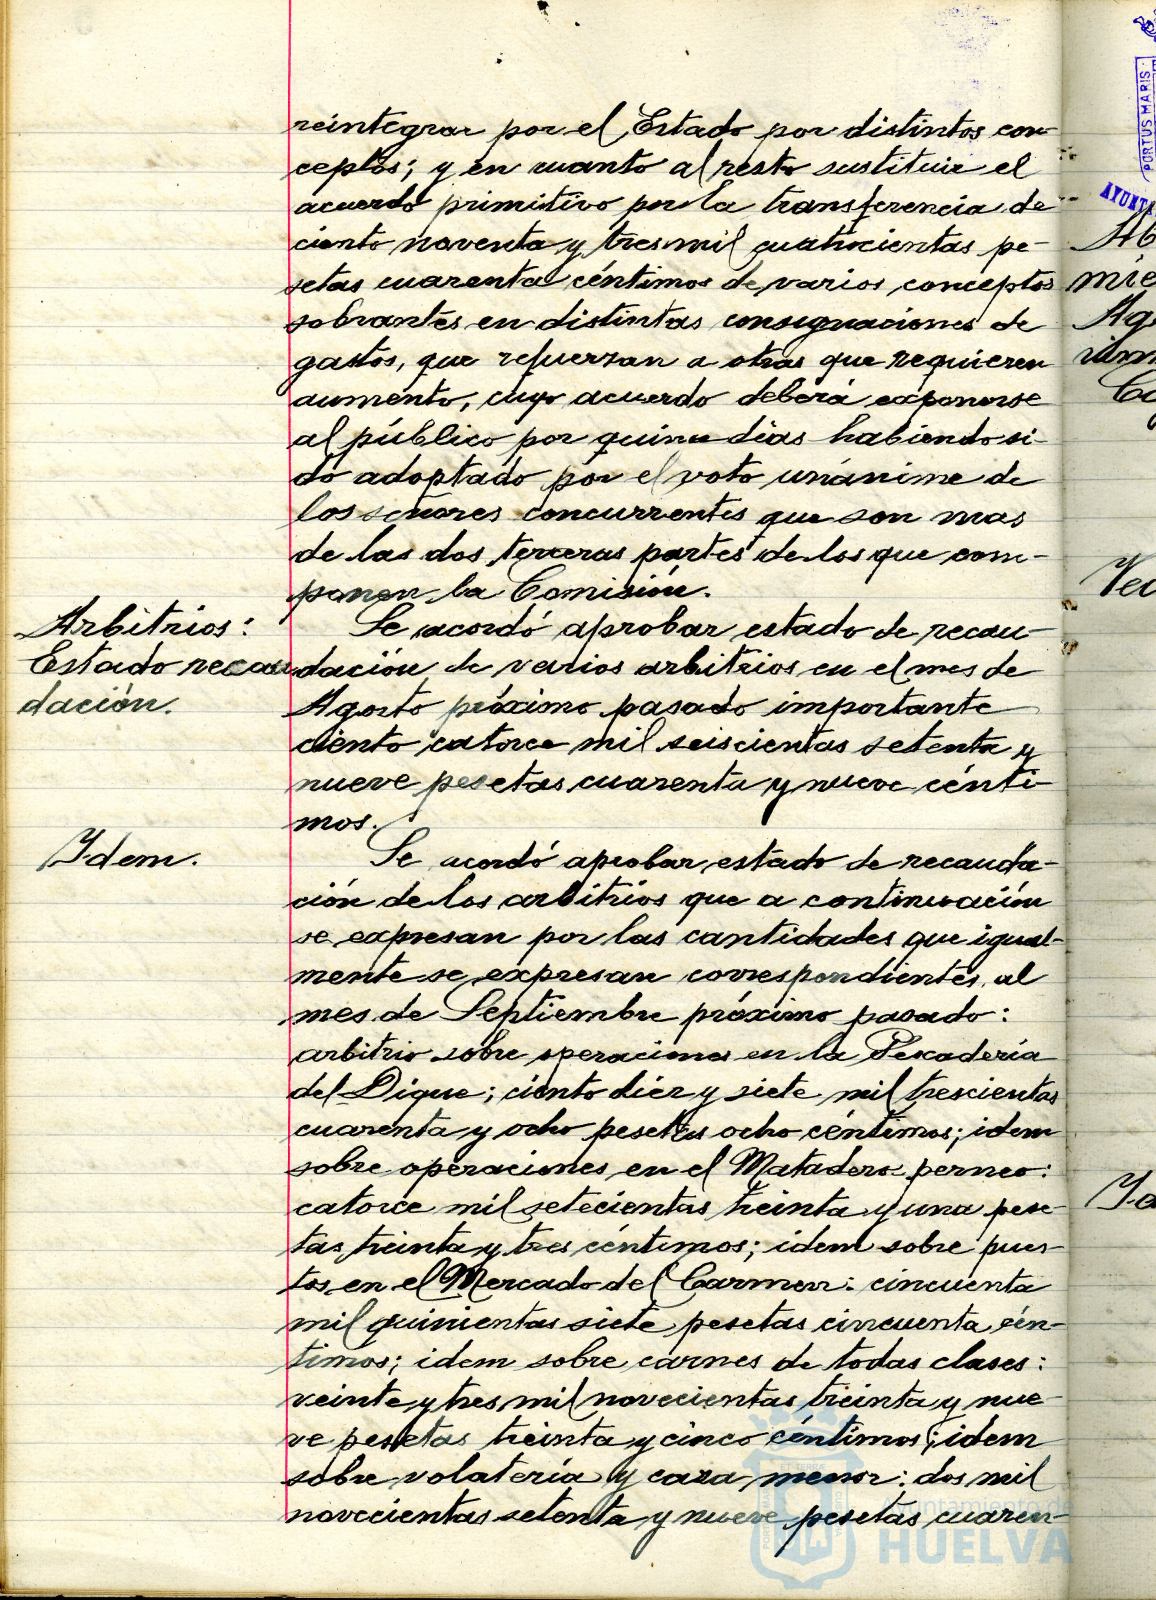 reintegrar por el Estado por distintos con-
ceptos; y en cuanto al resto sustituir el
acuerdo primitivo por la transferencia de
ciento noventa y tres mil cuatrocientas pe-
setas cuarenta céntimos de varios conceptos
sobrantes en distintas consignaciones de
gastos, que refuerzan a otras que requieren
aumento, cuyo acuerdo deberá exponerse
al público por quince dias habiendo si-
do adoptado por el voto unánime de
los señores concurrentes que son mas
de las dos terceras partes de los que com-
ponen la Comisión.
Arbitrios:
Estado recau
dación.
Se acordó aprobar estado de recau-
dación de varios arbitrios en el mes de
Agosto próximo pasado importante
ciento catorce mil seiscientas setenta y
nueve pesetas cuarenta y nueve cénti-
mos.
Idem.
Se acordó aprobar estado de recauda-
ción de los arbitrios que a continuación
se expresan por las cantidades que igual-
mente se expresan correspondientes al
mes de Septiembre próximo pasado:
arbitrio sobre operaciones en la Pescadería
del Dique; ciento diez y siete mil trescientas
cuarenta y ocho pesetas ocho céntimos; idem
sobre operaciones en el Matadero perneo:
catorce mil setecientas treinta y una pese-
tas treinta y tres céntimos; idem sobre pues-
tos en el Mercado del Carmen: cincuenta
mil quinientas siete pesetas cincuenta cén-
timos; idem sobre carnes de todas clases:
veinte y tres mil novecientas treinta y nue-
ve pesetas treinta y cinco céntimos; idem
sobre volatería y caza menor: dos mil
novecientas setenta y nueve pesetas cuaren-
Ayuntamiento de
HUELVA
PORTUS MARIS